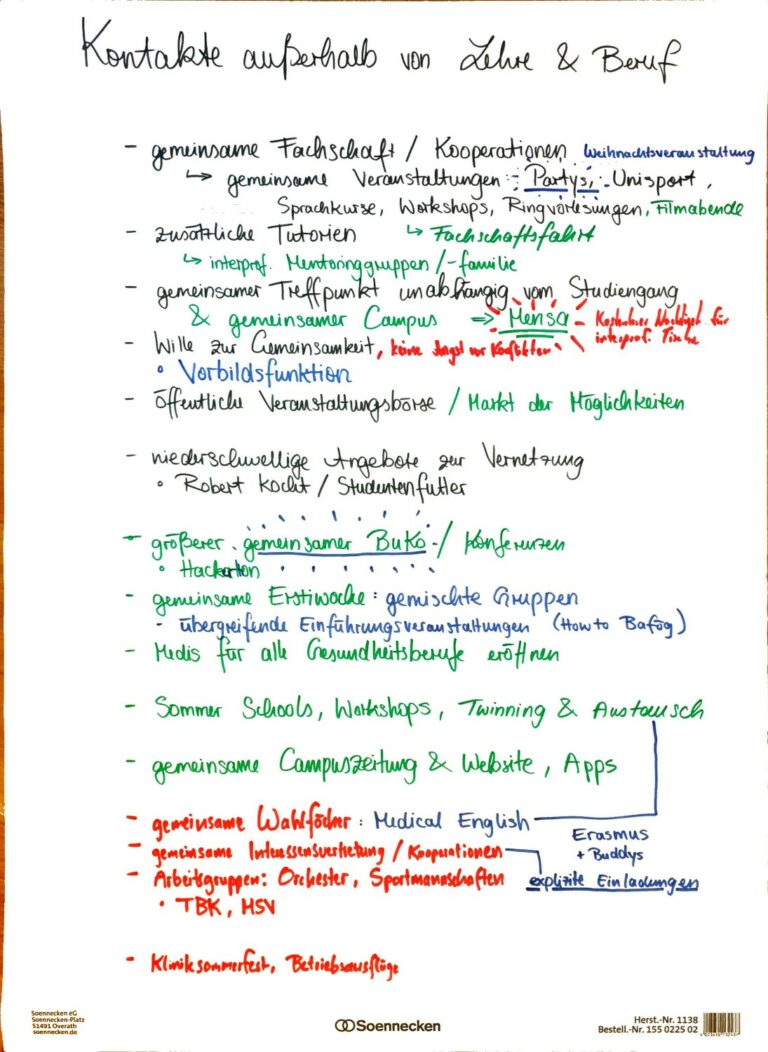 Kontakte außerhalb von Lehre & Beruf
- gemeinsame Fachschaft / Kooperationen Weihnachtsveranstaltung
↳ gemeinsame Veranstaltungen: Partys, Unisport,
Sprachkurse, Workshops, Ringvorlesungen, Filmabende
- zusätzliche Tutorien ↳ Fachschaftsfahrt
↳ interprof. Mentoringgruppen/-familie
- gemeinsamer Treffpunkt unabhängig vom Studiengang
& gemeinsamer Campus ⇒ Mensa - Kostenloser Nachtisch für
interprof. Tische
- Wille zur Gemeinsamkeit, keine Angst vor Konflikten
• Vorbildsfunktion
- öffentliche Veranstaltungsbörse / Markt der Möglichkeiten
- niederschwellige Angebote zur Vernetzung
• Robert kocht / Studentenfutter
- größerer gemeinsamer BuKo / Konferenzen
• Hackarton
- gemeinsame Erstiwoche: gemischte Gruppen
- übergreifende Einführungsveranstaltungen (How to Bafög)
- Medis für alle Gesundheitsberufe eröffnen
- Sommer Schools, Workshops, Twinning & Austausch
- gemeinsame Campuszeitung & Website, Apps
- gemeinsame Wahlfächer: Medical English
Erasmus
+ Buddys
- gemeinsame Interessensvertretung / Kooperationen
explizite Einladungen
- Arbeitsgruppen: Orchester, Sportmannschaften
• TBK, HSV
- Kliniksommerfest, Betriebsausflüge
Soennecken eG
Soennecken-Platz
51491 Overath
soennecken.de
Soennecken
Herst.-Nr. 1138
Bestell.-Nr. 155 0225 02